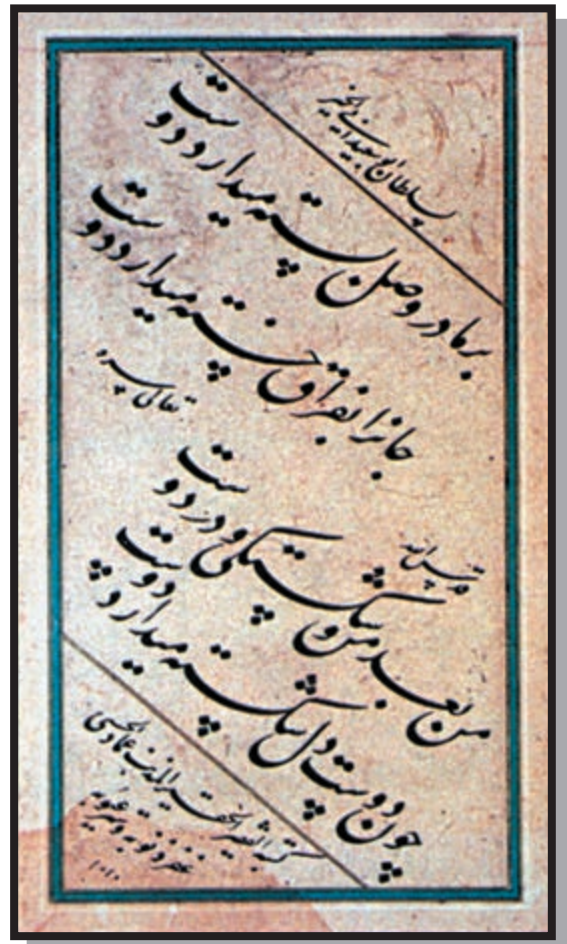 سلطان ابوسعید ابی الخیر
بر ما در وصل بسته میدارد دوست
جانرا بفراق خسته میدارد دوست
قدس الله
تعالی سره
من بعد من و شکستگی و در دوست
چون دوست دل شکسته میدارد دوست
کتبه الفقیر الحقیر المذنب عماد الحسنی
غفر ذنوبه و ستر عیوبه
۱۰۱۰